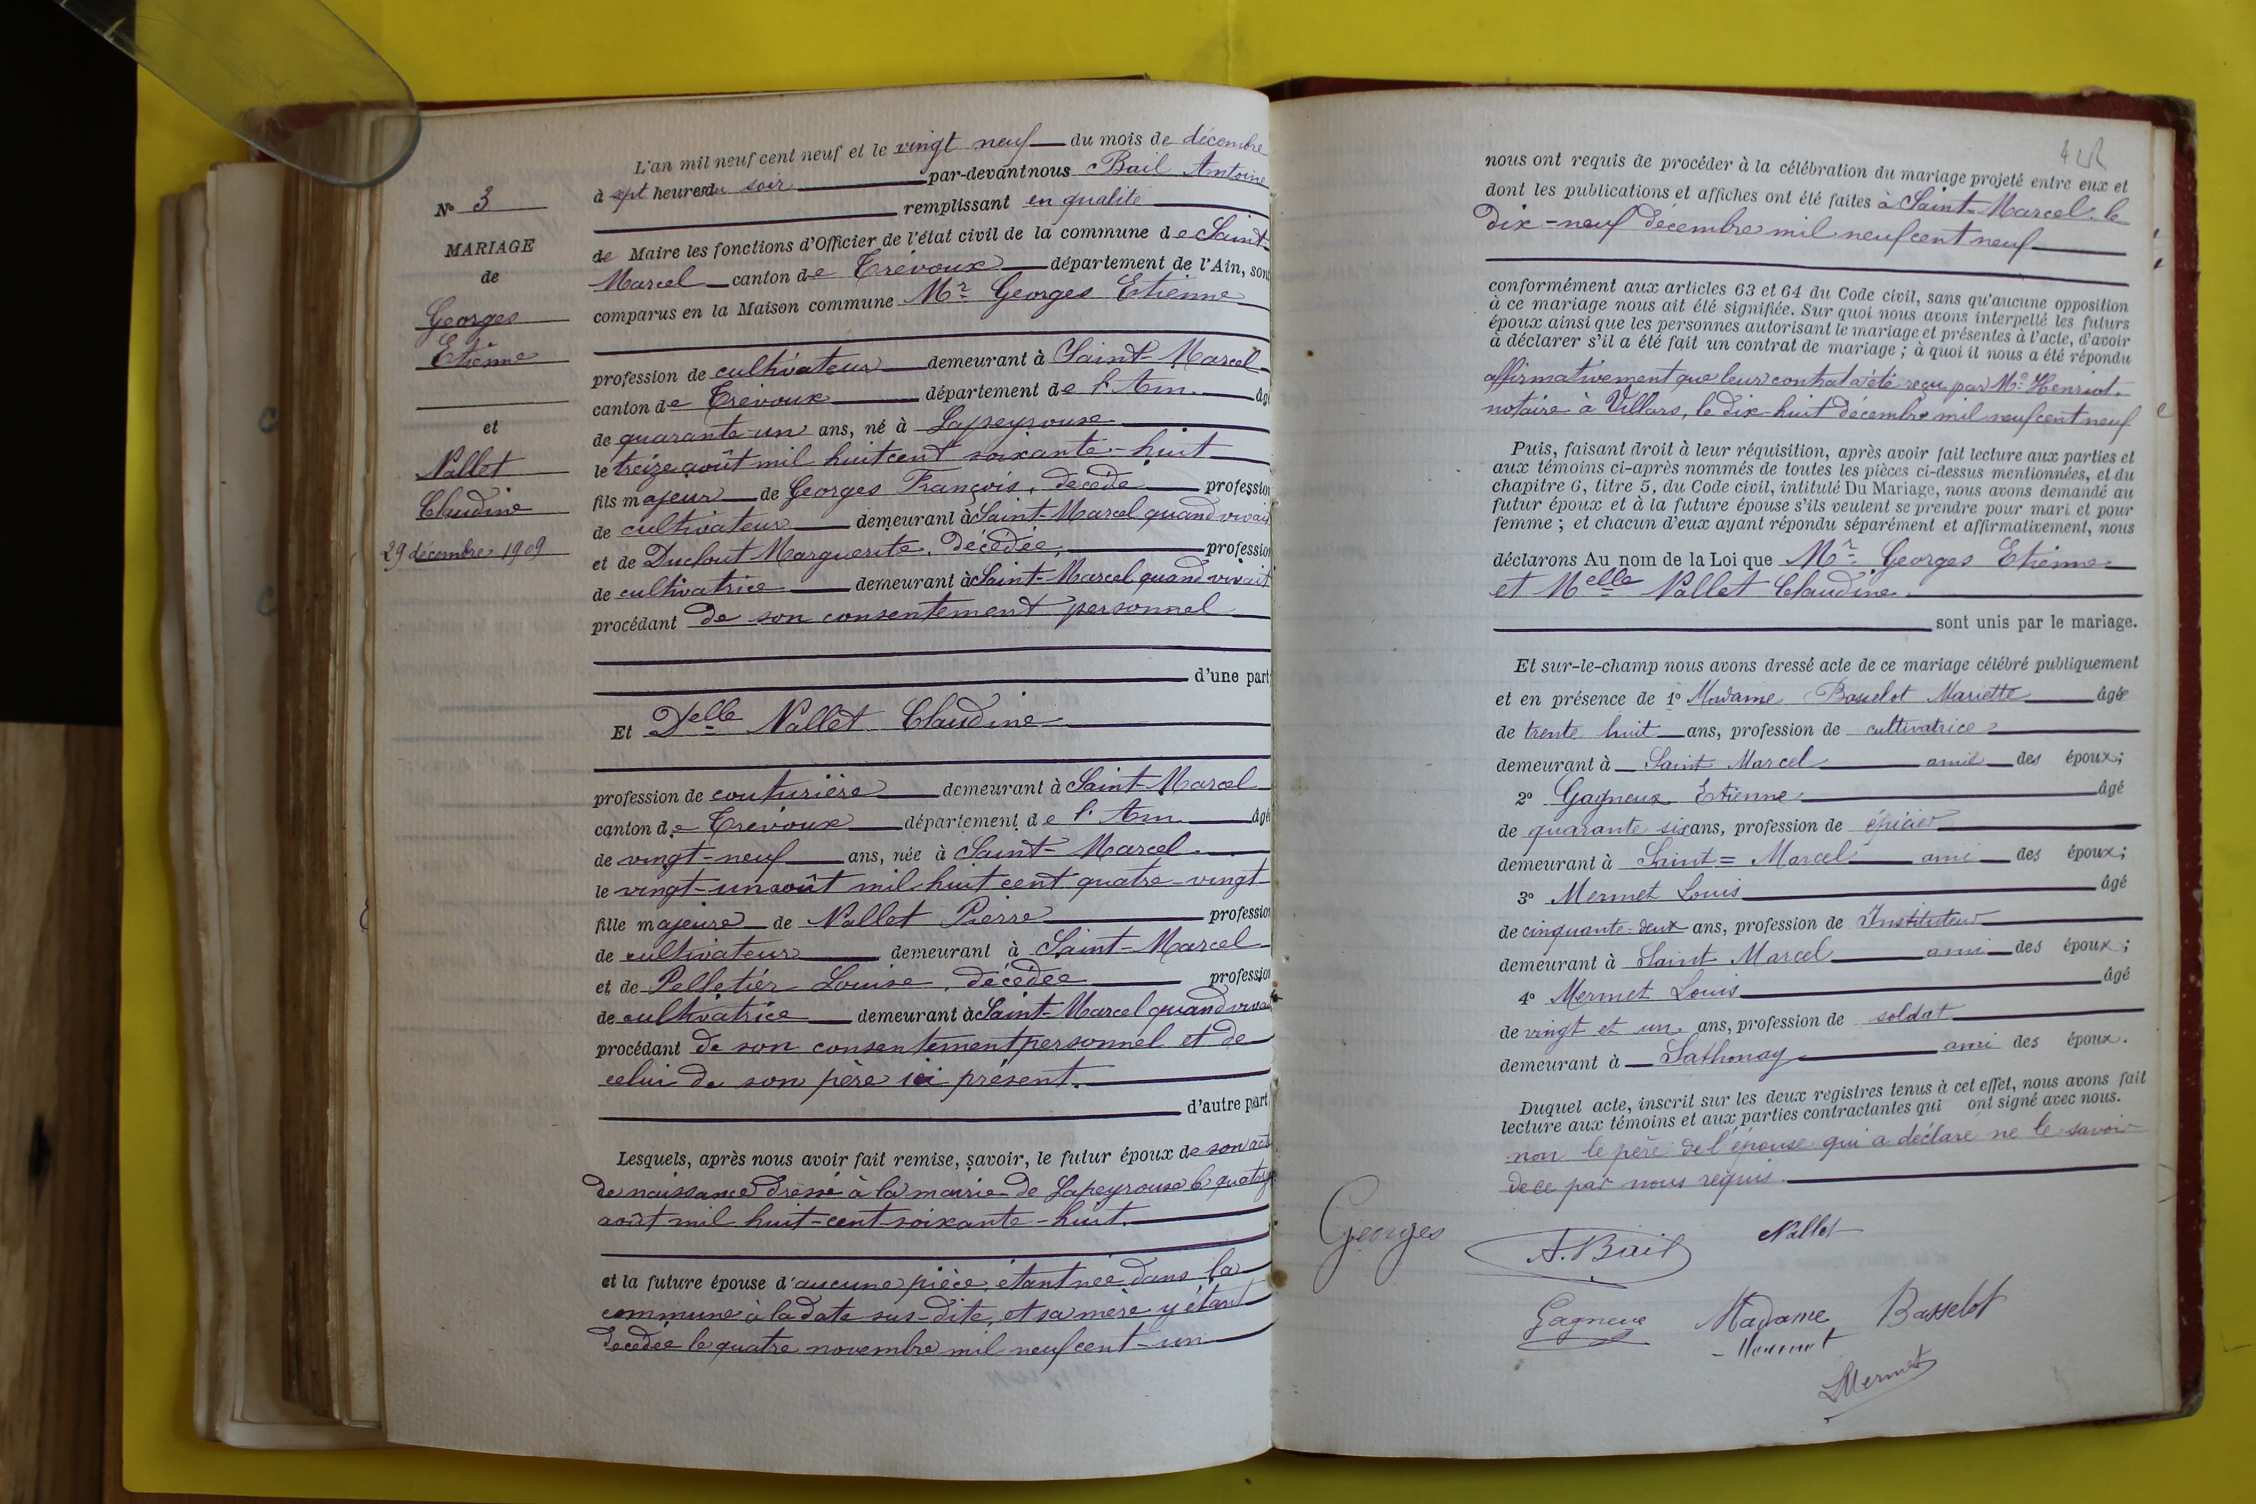 N° 3
MARIAGE
de
Georges
Etienne
et
Nallet
Claudine
29 décembre 1909
L'an mil neuf cent neuf et le vingt neuf du mois de décembre
à sept heures du soir par-devant nous Bail Antoine
remplissant en qualité
de Maire les fonctions d'Officier de l'état civil de la commune de Saint-
Marcel canton de Trévoux département de l'Ain, sont
comparus en la Maison commune Mr Georges Etienne
profession de cultivateur demeurant à Saint-Marcel
canton de Trévoux département de l'Ain âgé
de quarante-un ans, né à Lapeyrouse
le treize août mil huit cent soixante-huit
fils majeur de Georges François, décédé profession
de cultivateur demeurant à Saint-Marcel quand vivait
et de Duclout Marguerite, décédée, profession
de cultivatrice demeurant à Saint-Marcel quand vivait
procédant de son consentement personnel
d'une part
Et Delle Nallet Claudine
profession de couturière demeurant à Saint-Marcel
canton de Trévoux département de l'Ain âgé
de vingt-neuf ans, née à Saint-Marcel
le vingt-un août mil huit cent quatre-vingt
fille majeure de Nallet Pierre profession
de cultivateur demeurant à Saint-Marcel
et de Pelletier Louise, décédée profession
de cultivatrice demeurant à Saint-Marcel quand vivait
procédant de son consentement personnel et de
celui de son père ici présent.
d'autre part
Lesquels, après nous avoir fait remise, savoir, le futur époux de son acte
de naissance dressé à la mairie de Lapeyrouse le quatorze
août mil huit-cent-soixante-huit.
et la future épouse d'aucune pièce, étant née dans la
commune à la date sus-dite, et sa mère y étant
décédée le quatre novembre mil neuf cent-un
nous ont requis de procéder à la célébration du mariage projeté entre eux et
dont les publications et affiches ont été faites à Saint-Marcel, le
dix-neuf décembre mil neuf cent neuf
conformément aux articles 63 et 64 du Code civil, sans qu'aucune opposition
à ce mariage nous ait été signifiée. Sur quoi nous avons interpellé les futurs
époux ainsi que les personnes autorisant le mariage et présentes à l'acte, d'avoir
à déclarer s'il a été fait un contrat de mariage ; à quoi il nous a été répondu
affirmativement que leur contrat a été reçu par Me Henriot
notaire à Villars, le dix-huit décembre mil neuf cent neuf
Puis, faisant droit à leur réquisition, après avoir fait lecture aux parties et
aux témoins ci-après nommés de toutes les pièces ci-dessus mentionnées, et du
chapitre 6, titre 5, du Code civil, intitulé Du Mariage, nous avons demandé au
futur époux et à la future épouse s'ils veulent se prendre pour mari et pour
femme ; et chacun d'eux ayant répondu séparément et affirmativement, nous
déclarons Au nom de la Loi que Mr Georges Etienne
et Melle Nallet Claudine
sont unis par le mariage.
Et sur-le-champ nous avons dressé acte de ce mariage célébré publiquement
et en présence de 1° Madame Basselot Mariette âgée
de trente huit ans, profession de cultivatrice
demeurant à Saint Marcel amie des époux;
2° Gagneux Etienne âgé
de quarante six ans, profession de épicier
demeurant à Saint=Marcel ami des époux;
3° Mermet Louis âgé
de cinquante-deux ans, profession de Instituteur
demeurant à Saint Marcel ami des époux;
4° Mermet Louis âgé
de vingt et un ans, profession de soldat
demeurant à Sathonay ami des époux.
Duquel acte, inscrit sur les deux registres tenus à cet effet, nous avons fait
lecture aux témoins et aux parties contractantes qui ont signé avec nous.
non le père de l'épouse qui a déclaré ne le savoir
de ce par nous requis.
Georges A. Bail Nallet
Gagneux Madame Basselot
Mermet
LMermet